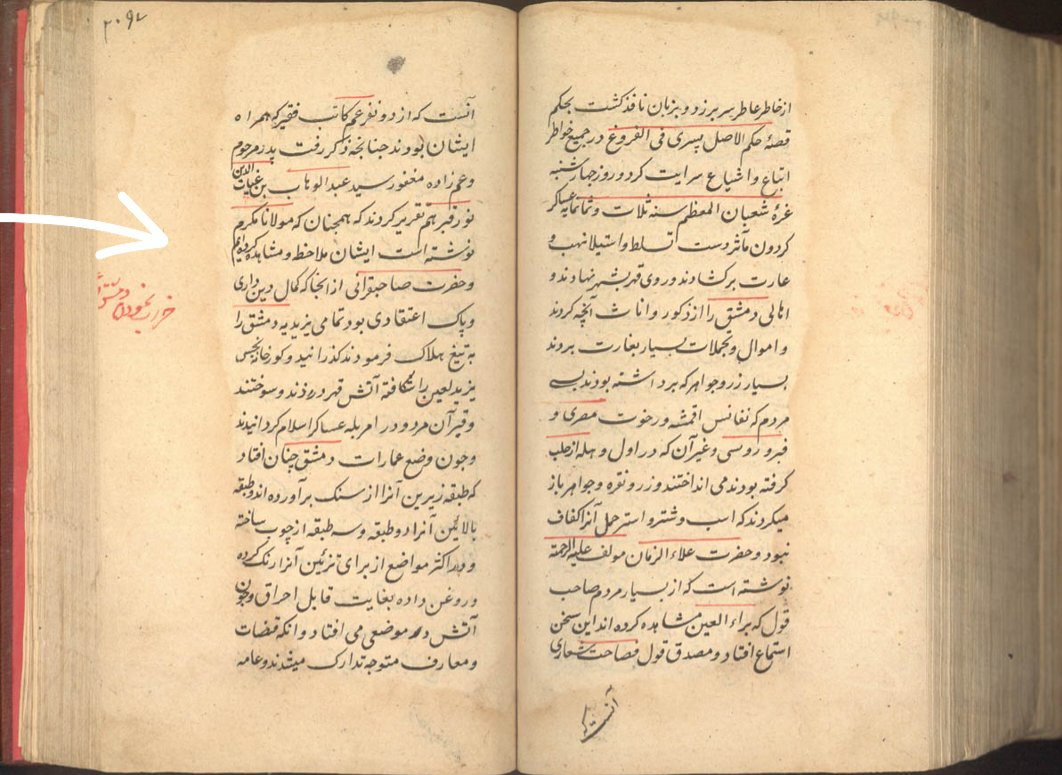 از خاطر عاطر سر برزد و بزبان نافذ کشت بحکم
قصهٔ حکم الاصل یسری فی الفروغ در جمیع خواطر
اتباع و اشیاع سرایت کرد و روز چهارشنبه
غرهٔ شعبان المعظم سنه ثلاث و ثمانمایه عساکر
کردون مآثر دست تسلط و استیلا بنهب و
غارت برکشادند و روی قهر بشهر نهادند و
اهالی دمشق را از ذکور و اناث آنچه کردند
و اموال و تجملات بسیار بغارت بردند
بسیار زر و جواهر که برداشته بودند بسی
مردم که نفائس اقمشه و رخوت مصری و
و روسی و غیر آن که در اول وهله از حلب
کرفته بودند می انداختند و زر و نقره و جواهر باز
میکردند که اسب و شتر و استر حمل آنرا کفاف
نبود و حضرت علاء الزمان مولف علیه الرحمة
نوشته است که از بسیار مردم صاحب
قول که براء العین مشاهده کرده اند این سخن
استماع افتاد و مصدق قول فصاحت شعاری
آنست که
۲۰۹۲
آنست که از دو نفر عم کاتب فقیر که همراه
ایشان بودند چنانچه ذکر رفت پدر مرحوم
و عم زاده مغفور سید عبدالوهاب بن غیاث الدین
نور قبرهم تقریر کردند که همچنان که مولانا مکرم
نوشته است ایشان ملاحظه و مشاهده کرده ایم
و حضرت صاحبقرانی از آنجا که کمال دین داری
و پاک اعتقادی بود تمامی یزیدیه دمشق را
به تیغ هلاک فرمودند کذرانید و کور خانه نجس
یزید لعین را شکافته آتش قهر در زدند و سوختند
و قبر آن مردود را مزبله عساکر اسلام کردانیدند
و چون وضع عمارات دمشق چنان افتاد
که طبقه زیرین آنرا از سنک برآورده اند و طبقه
بالائین آنرا دو طبقه و سه طبقه از چوب ساخته
و در اکثر مواضع از برای تزئین آنرا رنک کرده
و روغن داده بغایت قابل احراق و چون
آتش در موضعی می افتاد و آنکه قضات
و معارف متوجه تدارک میشدند و عامه
خراب نمودن دمشق